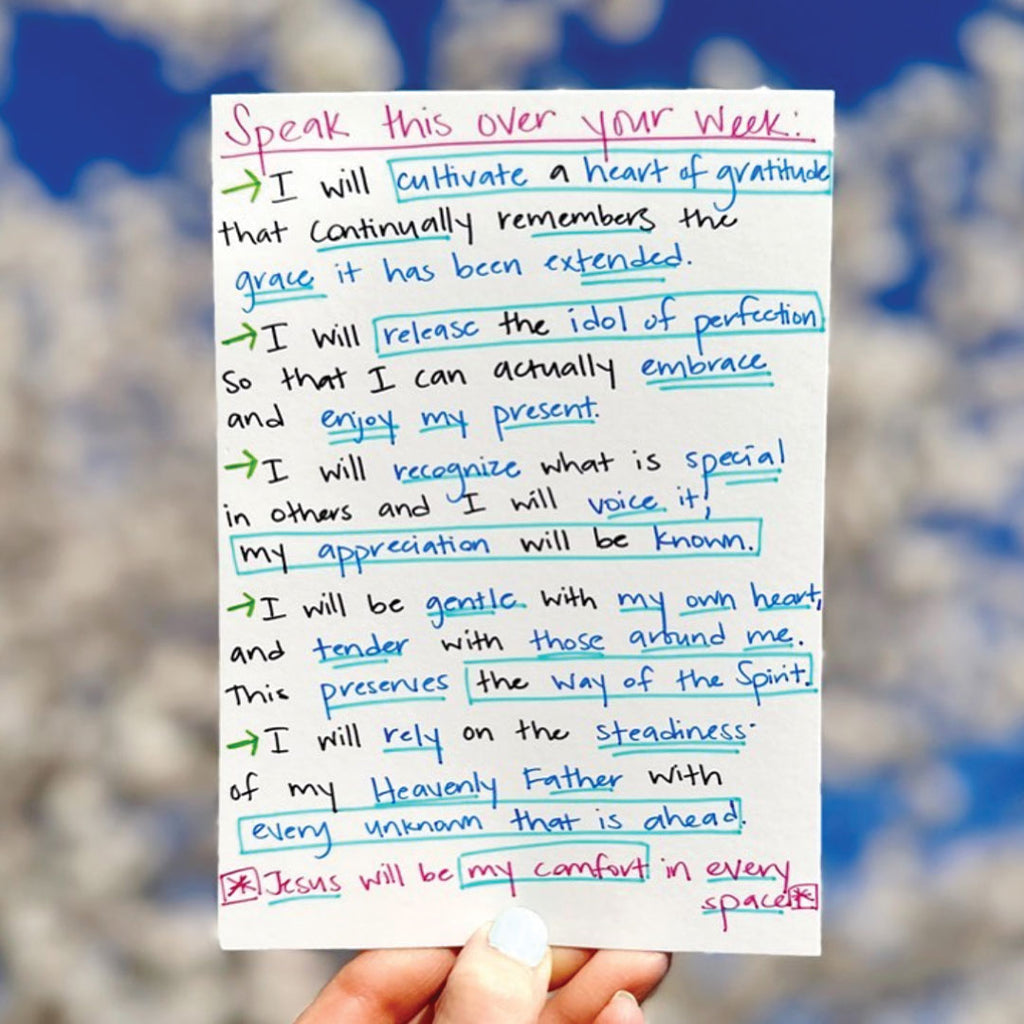 Speak this over your week:
→ I will cultivate a heart of gratitude
that continually remembers the
grace it has been extended.
→ I will release the idol of perfection
so that I can actually embrace
and enjoy my present.
→ I will recognize what is special
in others and I will voice it,
my appreciation will be known.
→ I will be gentle with my own heart,
and tender with those around me.
This preserves the way of the Spirit.
→ I will rely on the steadiness
of my Heavenly Father with
every unknown that is ahead.
* Jesus will be my comfort in every
space *